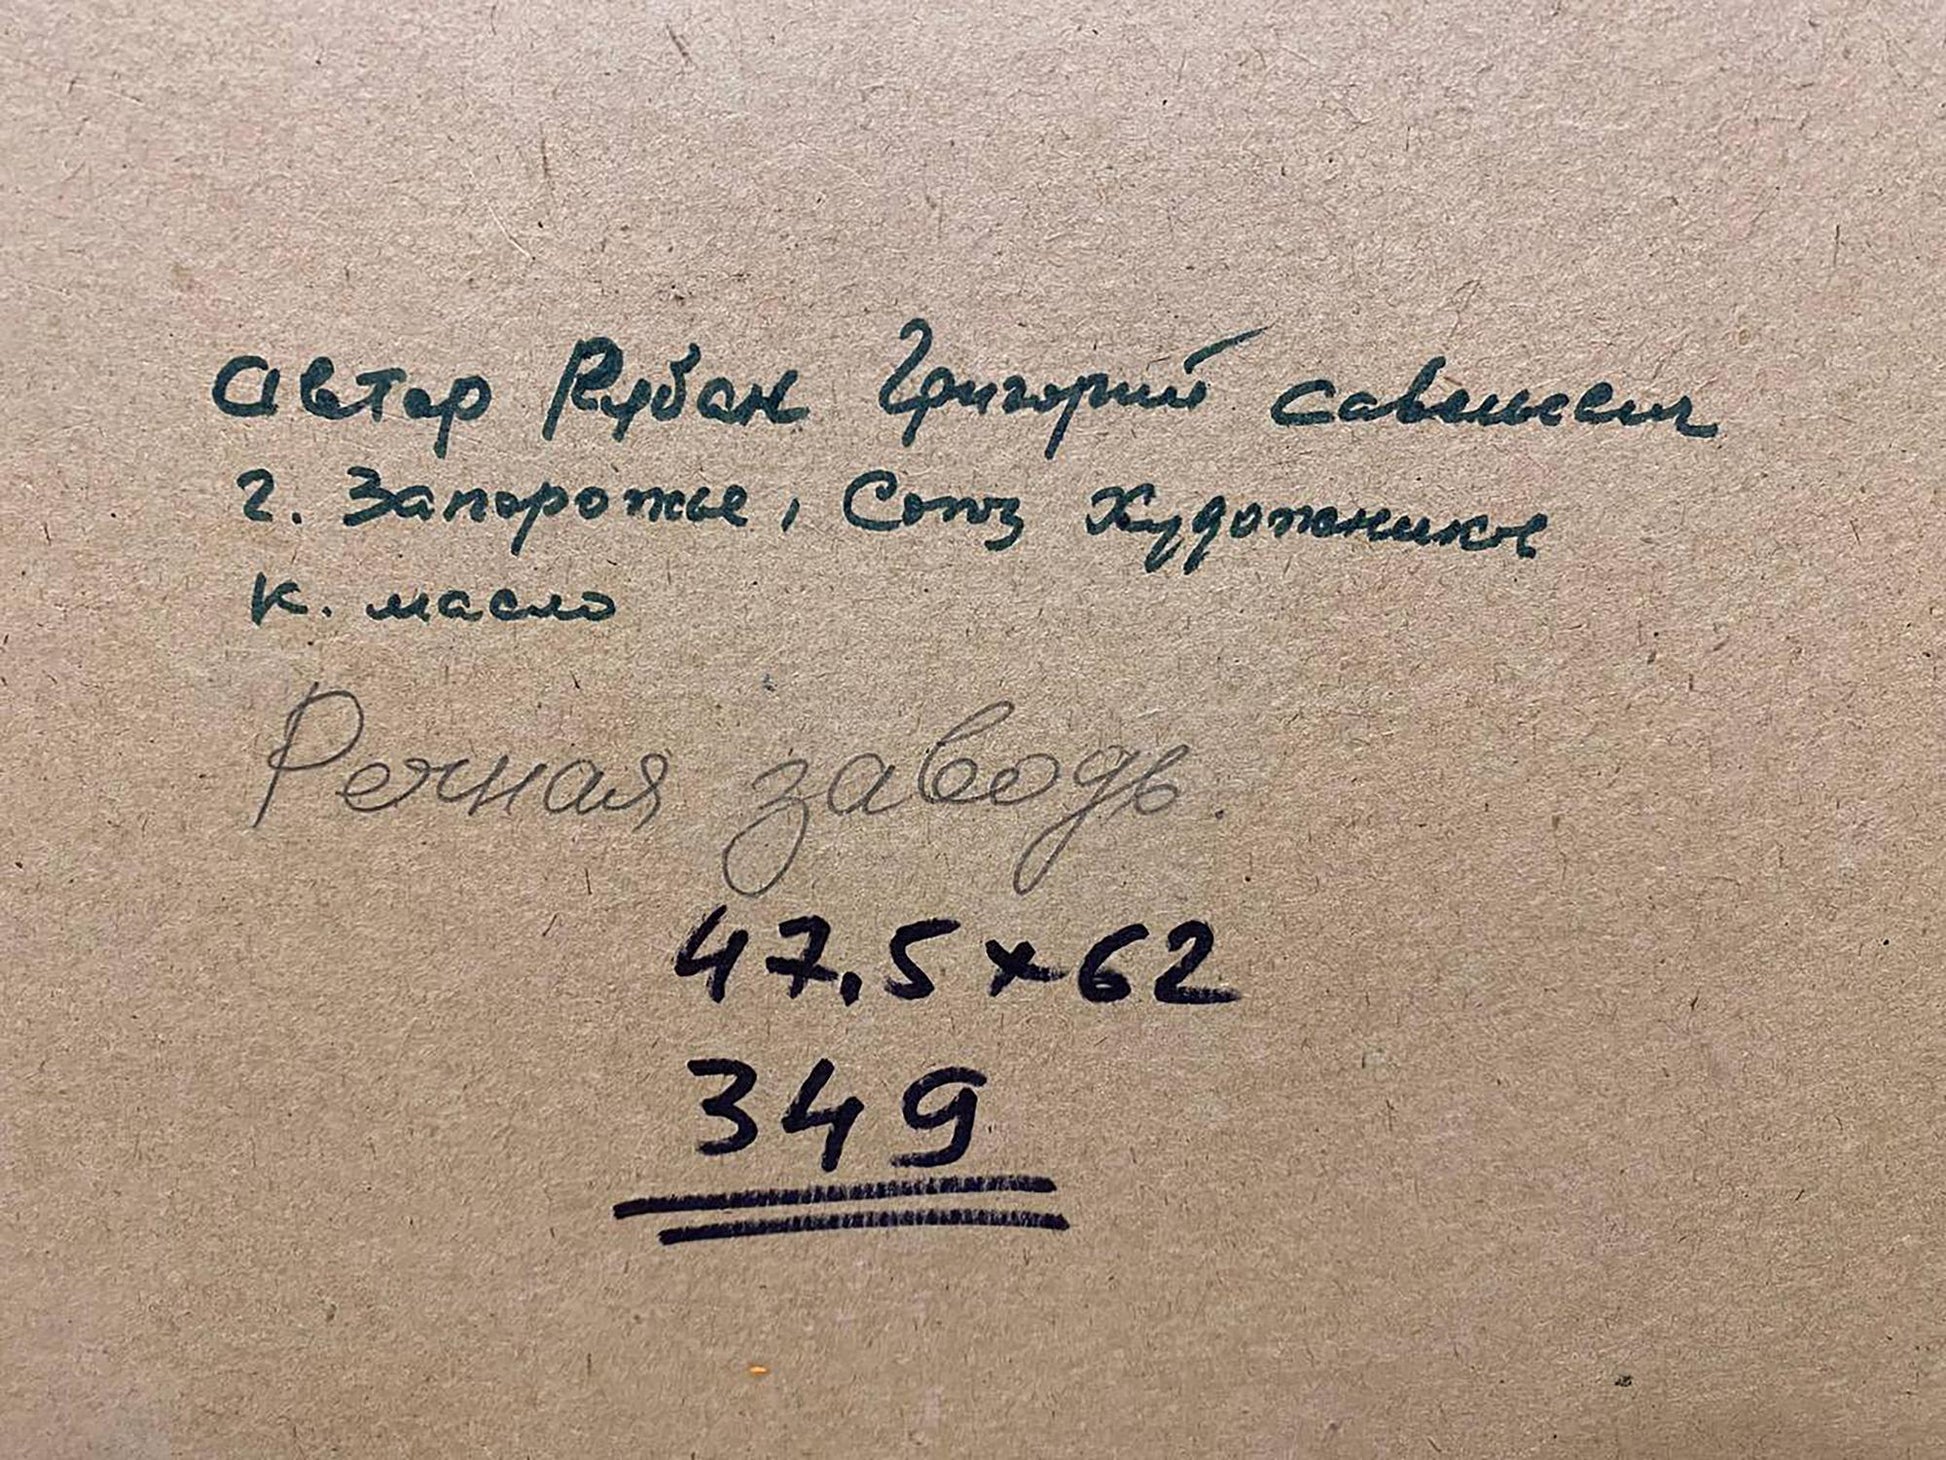 автор Рубан Григорий Савельевич
г. Запорожье, Союз Художников
к. масло
Речная заводь.
47,5×62
349